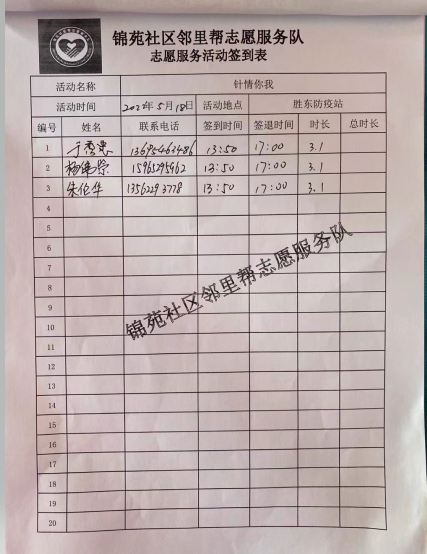 锦苑社区邻里帮志愿服务队
志愿服务活动签到表
活动名称 针情你我
活动时间 2022年5月18日 活动地点 胜东防疫站
编号 姓名 联系电话 签到时间 签退时间 时长 总时长
1 于秀惠 13:50 17:00 3.1
2 15965295962 13:50 17:00 3.1
3 朱伦华 13562293778 13:50 17:00 3.1
4
5
6
7
8
9
10
11
12
13
14
15
16
17
18
19
20
锦苑社区邻里帮志愿服务队